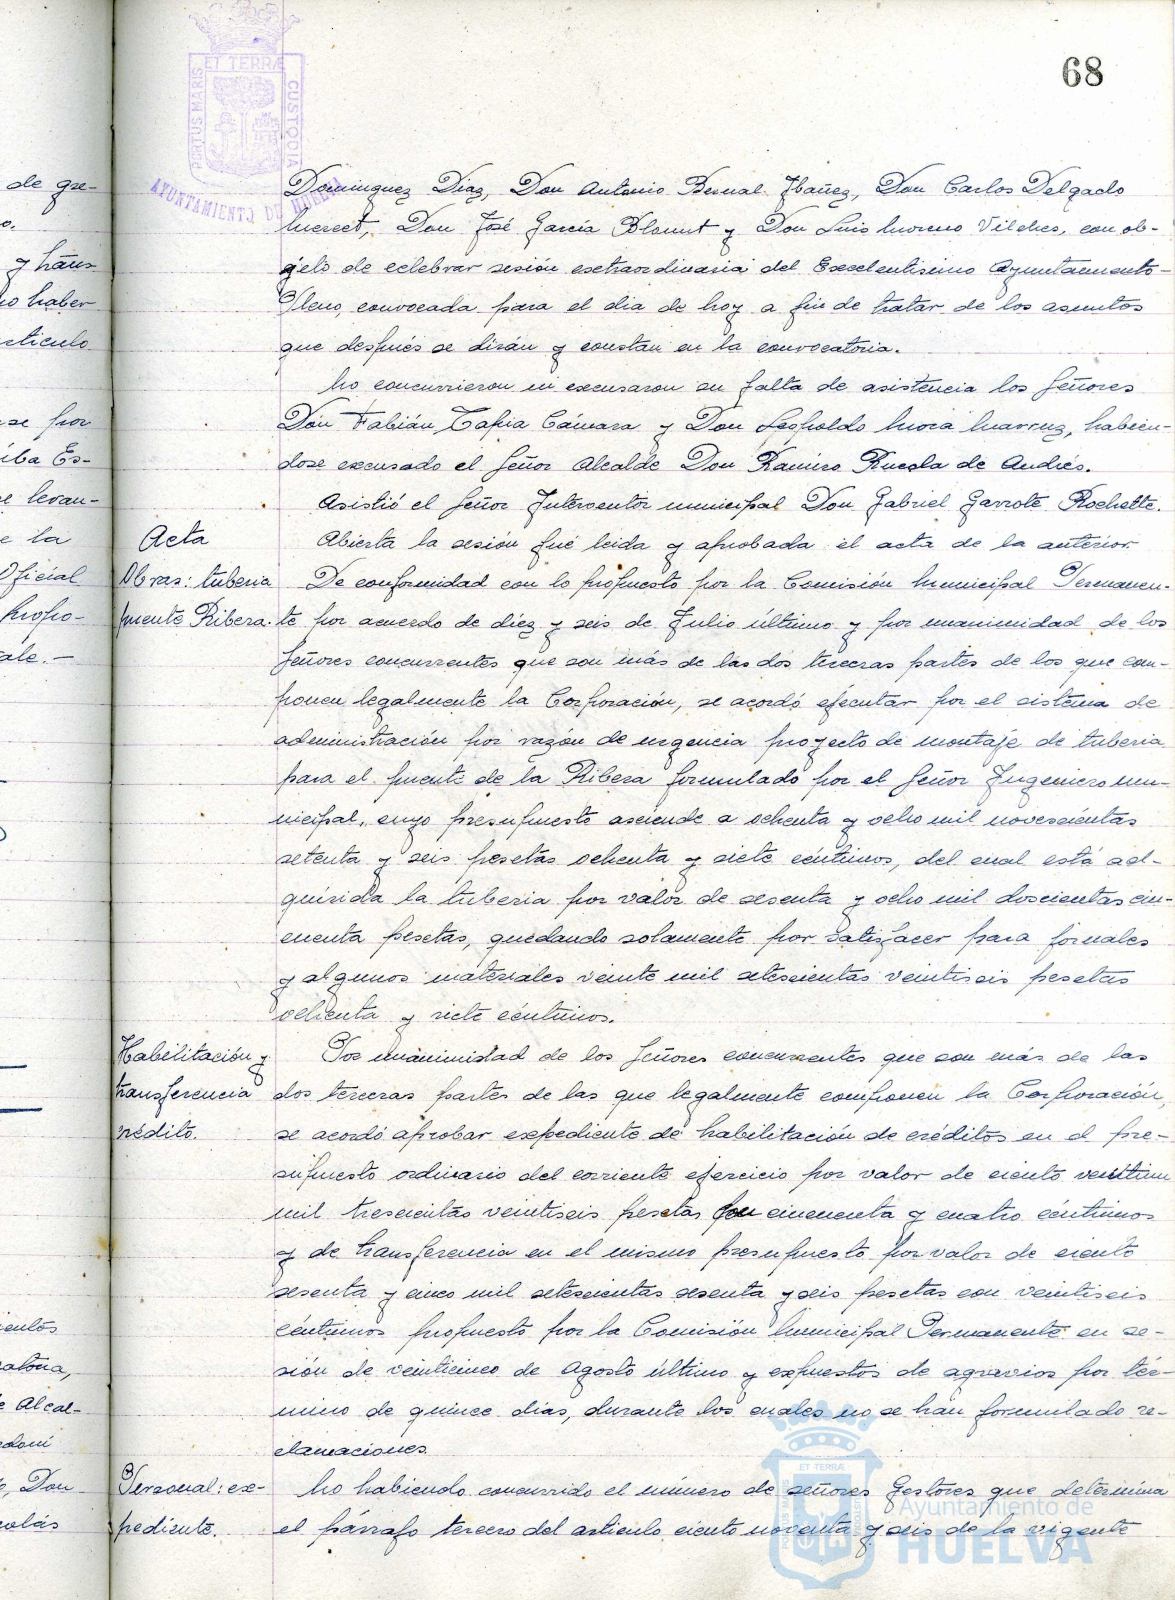 68
PORTUS MARIS ET TERRÆ CUSTODIA
AYUNTAMIENTO DE HUELVA
de gre-
o.
y trans-
no haber
articulo
se por
iba Es-
se levan-
e la
Oficial
propo-
ale.—
entos
atoria,
e Alcal-
, Don
olás
Dominguez Diaz, Don Antonio Bernal Ybañez, Don Carlos Delgado
Don José García Blount y Don Luis Moreno Vilches, con ob-
geto de celebrar sesión extraordinaria del Excelentisimo Ayuntamiento-
Pleno, convocada para el dia de hoy a fin de tratar de los asuntos
que después se dirán y constan en la convocatoria.
No concurrieron ni excusaron su falta de asistencia los Señores
Don Fabián Tapia Cámara y Don Leopoldo Mora habien-
dose excusado el Señor Alcalde Don Ramiro de Andrés.
Asistió el Señor Interventor municipal Don Gabriel Garrote Rochette.
Acta
Abierta la sesión fué leida y aprobada el acta de la anterior.
Obras: tuberia
puente Ribera.
De conformidad con lo propuesto por la Comisión Municipal Permanen-
te por acuerdo de diez y seis de Julio último y por unanimidad de los
Señores concurrentes que son más de las dos terceras partes de los que com-
ponen legalmente la Corporación, se acordó ejecutar por el sistema de
administración por razón de urgencia proyecto de montaje de tuberia
para el puente de la Ribera formulado por el Señor Ingeniero mu-
nicipal, cuyo presupuesto asciende a ochenta y ocho mil novescientas
setenta y seis pesetas ochenta y siete céntimos, del cual está ad-
quirida la tuberia por valor de sesenta y ocho mil doscientas cin-
cuenta pesetas, quedando solamente por satisfacer para jornales
y algunos materiales veinte mil setescientas veintiseis pesetas
ochenta y siete céntimos.
Habilitación y
transferencia
crédito.
Por unanimidad de los Señores concurrentes que son más de las
dos terceras partes de las que legalmente componen la Corporación,
se acordó aprobar expediente de habilitación de créditos en el pre-
supuesto ordinario del corriente ejercicio por valor de ciento veintiun
mil trescientas veintiseis pesetas con cincuenta y cuatro céntimos
y de transferencia en el mismo presupuesto por valor de ciento
sesenta y cinco mil setescientas sesenta y seis pesetas con veintiseis
céntimos propuesto por la Comisión Municipal Permanente en se-
sión de veinticinco de Agosto último y expuestos de agravios por tér-
mino de quince dias, durante los cuales no se han formulado re-
clamaciones.
Personal: ex-
pediente.
No habiendo concurrido el número de señores Gestores que determina
el párrafo tercero del articulo ciento noventa y seis de la vigente
ET TERRÆ
Ayuntamiento de
HUELVA